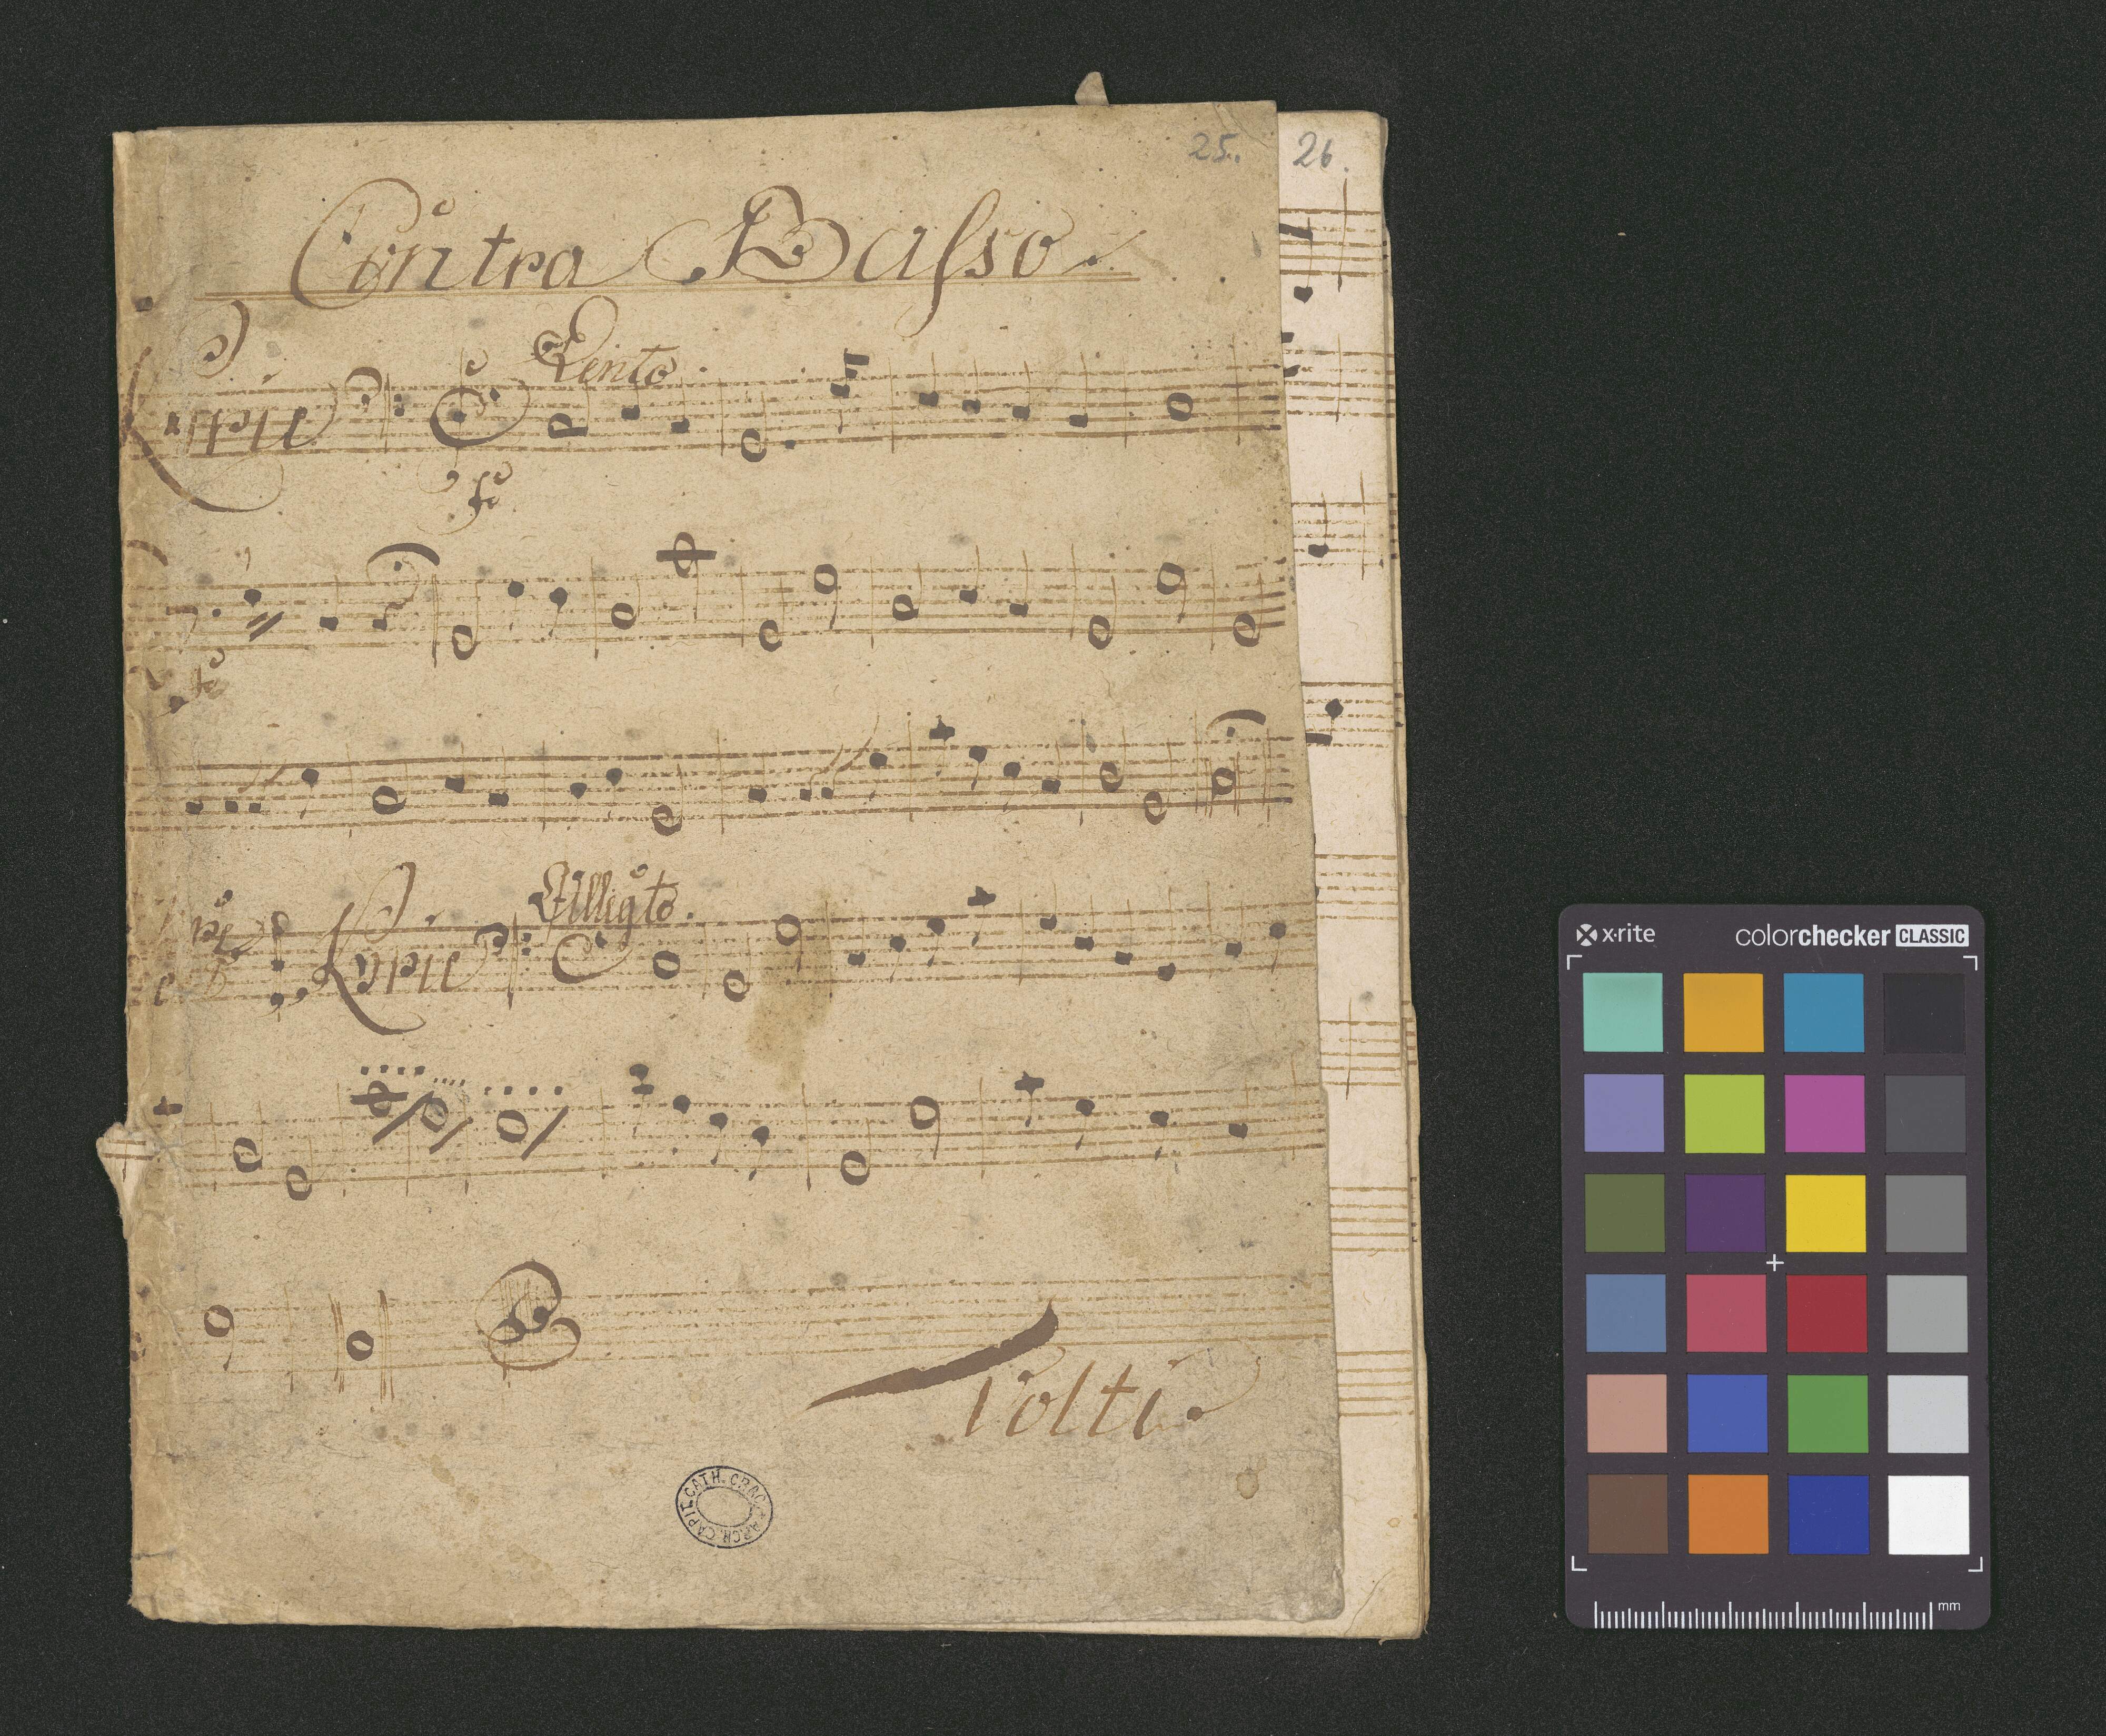 25.
26.
Contra Basso.
Lento.
Kyrie
Allegto.
Kyrie
Volti.
CAPIT. CATH. CRAC. ARCH.
x-rite
colorchecker CLASSIC
mm